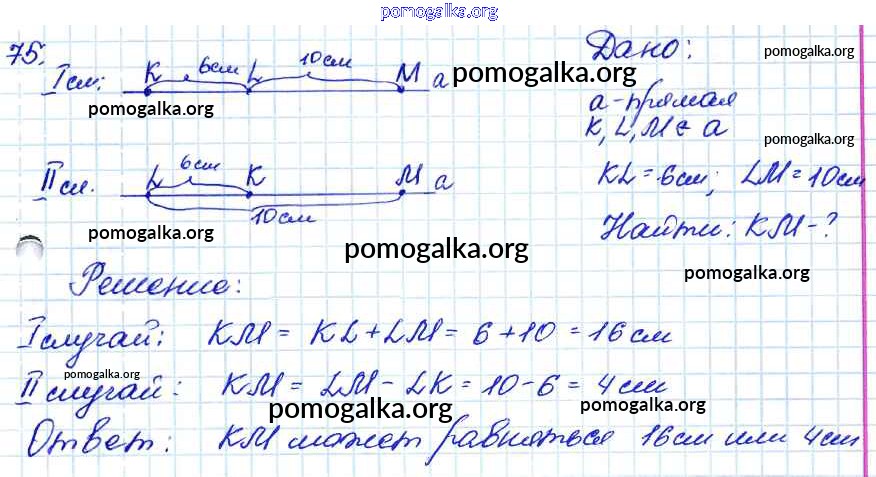 pomogalka.org
75.
I сл: K 6см L 10см M a
pomogalka.org
Дано:
pomogalka.org
pomogalka.org
a - прямая
K, L, M ∈ a
pomogalka.org
II сл. L 6см K M a
10см
KL = 6см; LM = 10см
pomogalka.org
Найти: KM - ?
pomogalka.org
pomogalka.org
Решение:
I случай: KM = KL + LM = 6 + 10 = 16 см
pomogalka.org
II случай: KM = LM - LK = 10 - 6 = 4 см
pomogalka.org
pomogalka.org
Ответ: KM может равняться 16 см или 4 см